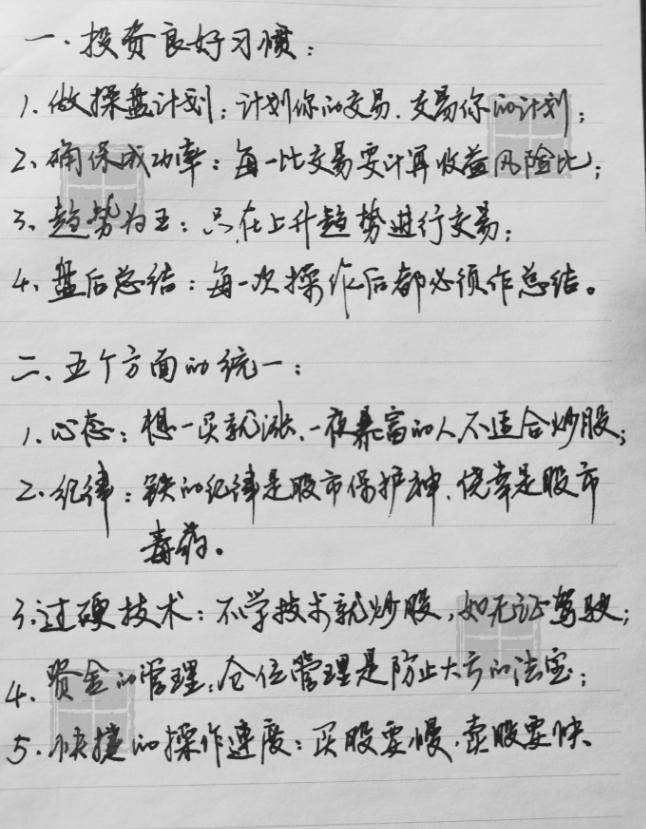 一.投资良好习惯：
1.做操盘计划：计划你的交易.交易你的计划；
2、确保成功率：每一比交易要计算收益风险比；
3、趋势为王：只在上升趋势进行交易；
4、盘后总结：每一次操作后都必须作总结。
二、五个方面的统一：
1.心态：想一买就涨.一夜暴富的人不适合炒股；
2、纪律：铁的纪律是股市保护神.侥幸是股市
毒药。
3.过硬技术：不学技术就炒股，如无证驾驶；
4、资金的管理：仓位管理是防止大亏的法宝；
5.快捷的操作速度：买股要慢.卖股要快.